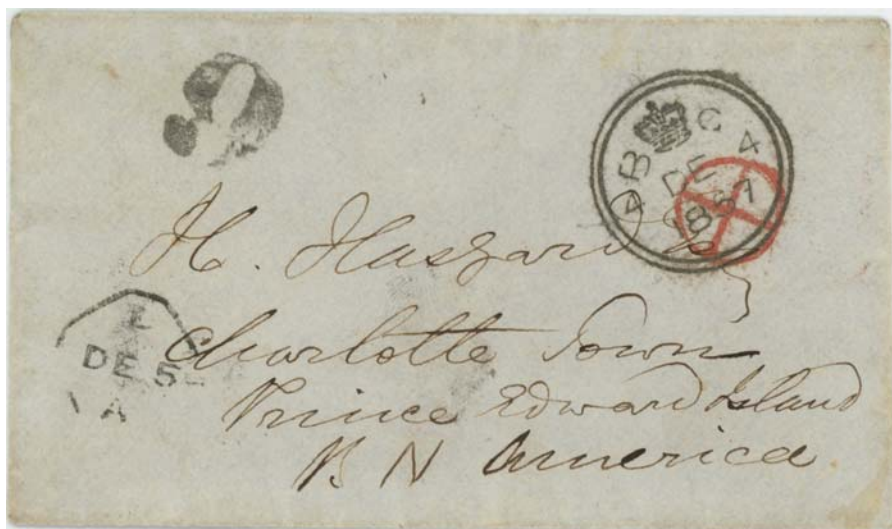 9
B C
4 4
DE
1857
H. Haszard
L
DE 5
A
Charlotte Town
Prince Edward Island
B N America